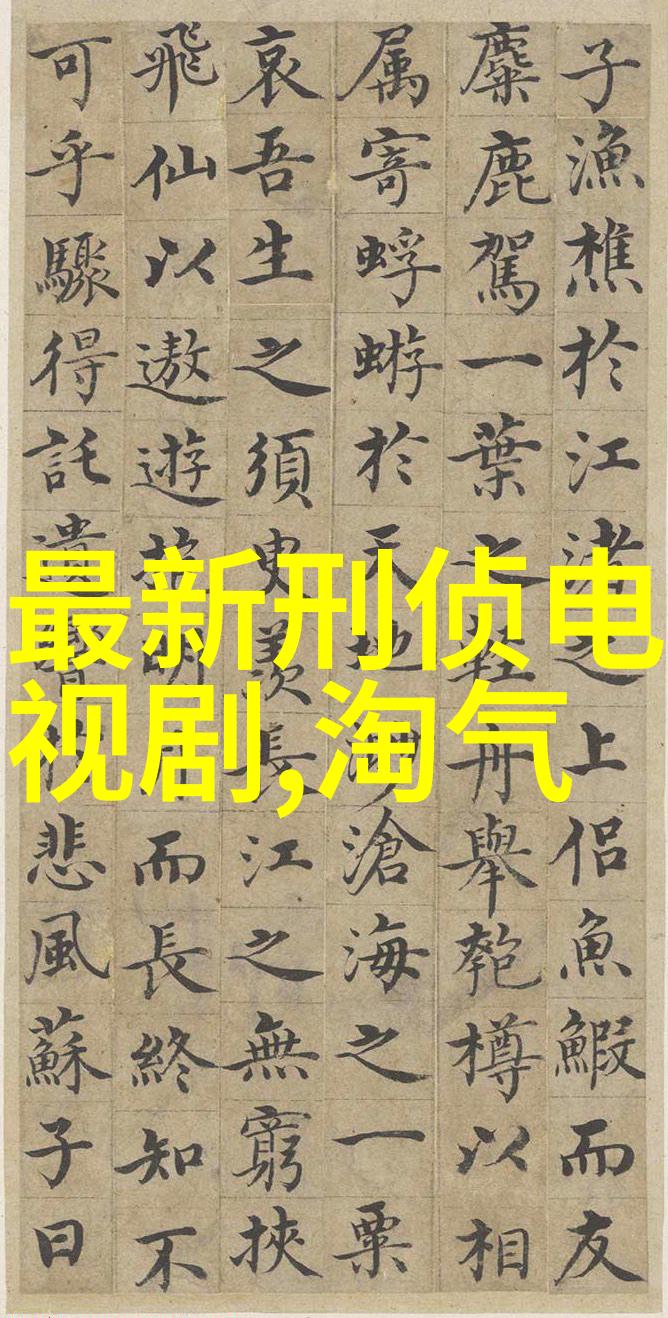 子漁樵於江渚之上侣魚鰕而友
麋鹿駕一葉之輕舟舉匏樽以相
属寄蜉蝣於天地渺滄海之一粟
哀吾生之須臾羨長江之無窮挾
飛仙以遨遊抱明而長終知不
可乎驟得託遺響悲風蘇子曰
最新刑侦电
视剧,淘气